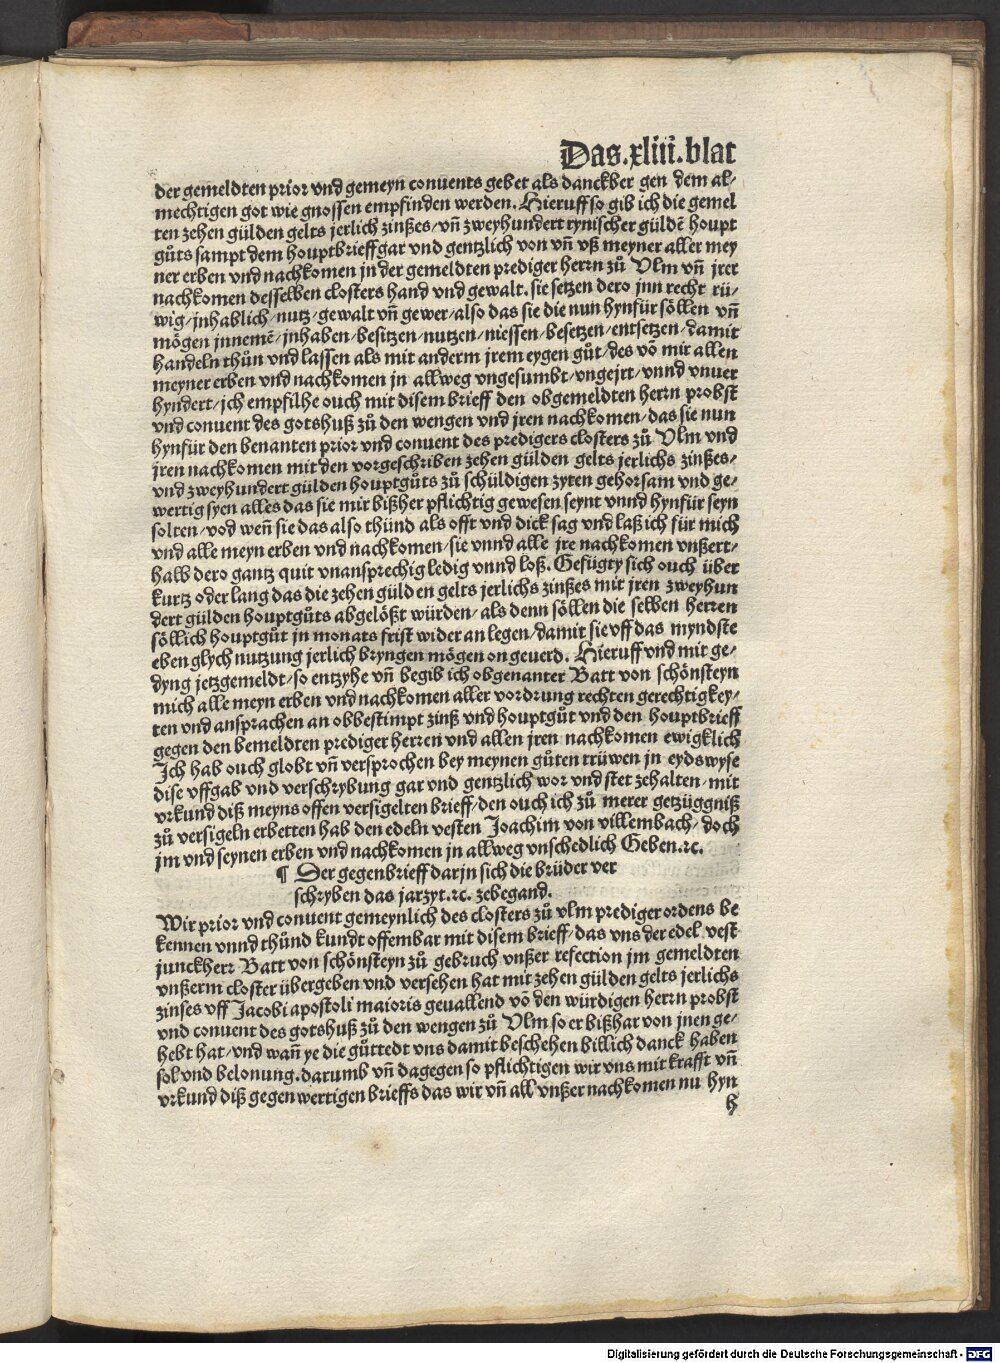 Das.xliii.blat
der gemeldten prior vnd gemeyn conuents gebet als danckber gen dem al-
mechtigen got wie gnossen empfinden werden. Hieruff so gib ich die gemel
ten zehen gülden gelts jerlich zinßes/vñ zweyhundert rynischer güldẽ houpt
gůts sampt dem houptbrieff gar vnd gentzlich von vñ vß meyner aller mey
ner erben vnd nachkomen jn der gemeldten prediger herrn zů Vlm vñ jrer
nachkomen desselben closters hand vnd gewalt. sie setzen dero jnn recht rü-
wig/jnhablich/nutz/gewalt vñ gewer/also das sie die nun hynfür söllen vñ
mögen jnnemẽ/jnhaben/besitzen/nutzen/niessen/besetzen/entsetzen/damit
handeln thůn vnd lassen als mit anderm jrem eygen gůt/des võ mir allen
meyner erben vnd nachkomen jn allweg vngesumbt/vngejrt/vnnd vnuer
hyndert/jch empfilhe ouch mit disem brieff den obgemeldten herrn probst
vnd conuent des gotshuß zů den wengen vnd jren nachkomen/das sie nun
hynfür den benanten prior vnd conuent des predigers closters zů Vlm vnd
jren nachkomen mit den vorgeschriben zehen gülden gelts jerlichs zinßes/
vnd zweyhundert gülden houptgůts zů schüldigen zyten gehorsam vnd ge-
wertig syen alles das sie mir bißher pflichtig gewesen seynt vnnd hynfür seyn
solten/vod weñ sie das also thünd als offt vnd dick sag vnd laß ich für mich
vnd alle meyn erben vnd nachkomen/sie vnnd alle jre nachkomen vnßert/
halb dero gantz quit vnansprechig ledig vnnd loß. Gefügty sich ouch über
kurtz oder lang das die zehen gülden gelts jerlichs zinßes mit jren zweyhun
dert gülden houptgůts abgelößt würden/als denn söllen die selben herren
söllich houptgůt jn monats frist wider an legen/damit sie vff das myndste
eben glych nutzung jerlich bryngen mögen on geuerd. Hieruff vnd mit ge-
dyng jetzgemeldt/so entzyhe vñ begib ich obgenanter Batt von schönsteyn
mich alle meyn erben vnd nachkomen aller vordrung rechten gerechtigkey/
ten vnd ansprachen an obbestimpt zinß vnd houptgůt vnd den houptbrieff
gegen den bemeldten prediger herren vnd allen jren nachkomen ewigklich
Ich hab ouch globt vñ versprochen bey meynen gůten trüwen jn eydswyse
dise vffgab vnd verschrybung gar vnd gentzlich wor vnd stet zehalten/mit
vrkund diß meyns offen versigelten brieff/den ouch ich zů merer getzüggniß
zů versigeln erbetten hab den edeln vesten Joachim von villembach/doch
jm vnd seynen erben vnd nachkomen jn allweg vnschedlich Geben.ꝛc.
¶ Der gegenbrieff darjn sich die brüder ver
schryben das jarzyt.ꝛc. zebegand.
Wir prior vnd conuent gemeynlich des closters zů vlm prediger ordens be
kennen vnnd thůnd kundt offembar mit disem brieff/das vns der edel vest
junckherr Batt von schönsteyn zů gebruch vnßer refection jm gemeldten
vnßerm closter übergeben vnd versehen hat mit zehen gülden gelts jerlichs
zinses vff Jacobi apostoli maioris geuallend võ den würdigen herrn probst
vnd conuent des gotshuß zů den wengen zů Vlm so er bißhar von jnen ge/
hebt hat/vnd wañ ye die gůttedt vns damit beschehen billich danck haben
sol vnd belonung. darumb vñ dagegen so pflichtigen wir vns mit krafft vñ
vrkund diß gegenwertigen brieffs das wir vñ all vnßer nachkomen nu hyn
h
Digitalisierung gefördert durch die Deutsche Forschungsgemeinschaft - DFG